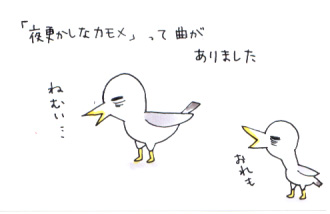 「夜更かしなカモメ」って曲が
ありました
ねむい…
おれも